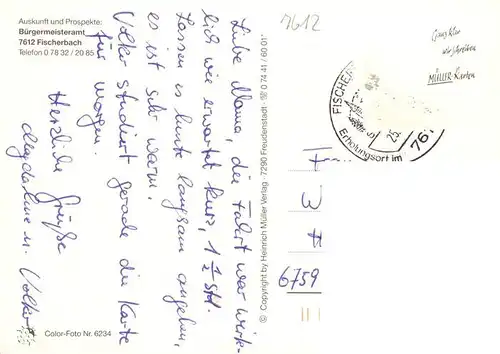 Auskunft und Prospekte:
Bürgermeisteramt
7612 Fischerbach
Telefon 0 78 32 / 20 85
Liebe Mama, die Fahrt war wirk-
lich wie erwartet kurz, 1 1/2 Std.
Lassen es heute langsam angehen,
es ist sehr warm.
Volker studiert gerade die Karte
für morgen.
Herzliche Grüße
Magdalene u. Volker
Color-Foto Nr. 6234
© Copyright by Heinrich Müller Verlag · 7290 Freudenstadt · ☏ 0 74 41 / 60 01
7612
Ganz klar
wir schreiben
MÜLLER-Karten
FISCHER
Erholungsort im
76
25.
F
W
#
6759